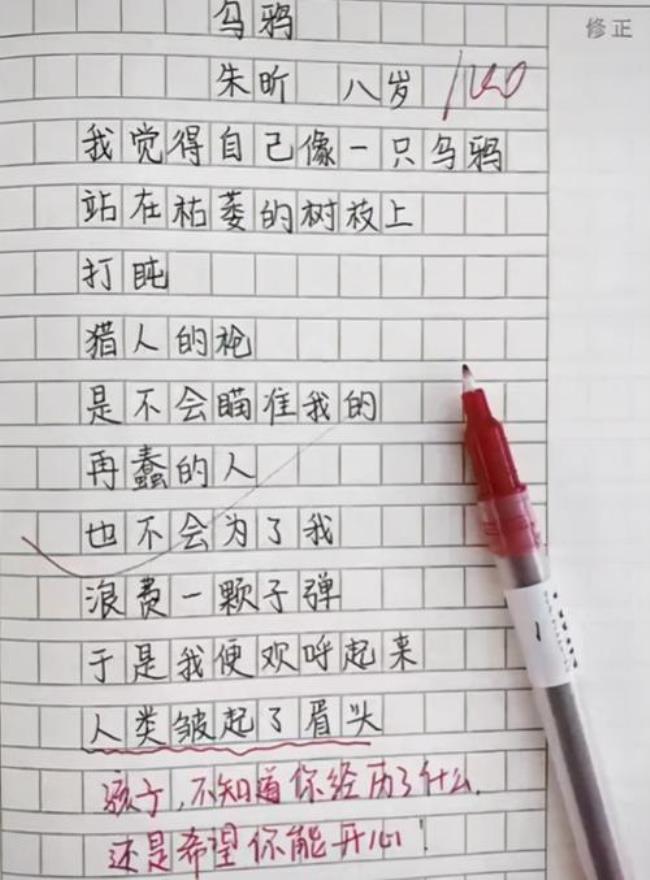 乌鸦
修正
朱昕 八岁 100
我觉得自己像一只乌鸦
站在枯萎的树枝上
打盹
猎人的枪
是不会瞄准我的
再蠢的人
也不会为了我
浪费一颗子弹
于是我便欢呼起来
人类皱起了眉头
孩子,不知道你经历了什么.
还是希望你能开心!